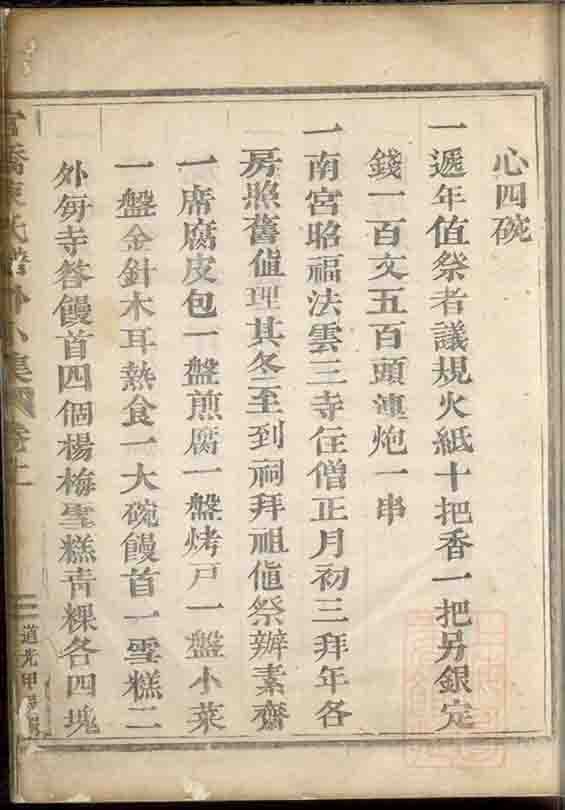 心四碗
一遞年值祭者議規火紙十把香一把另銀定
錢一百文五百頭連炮一串
一南宮昭福法雲三寺住僧正月初三拜年各
房照舊値理其冬至到祠拜祖値祭辦素齋
一席腐皮包一盤煎腐一盤烤戸一盤小菜
一盤金針木耳熱食一大碗饅首一雪糕二
外每寺答饅首四個楊梅雪糕靑粿各四塊
橋陳氏譜外小集
二
道光甲